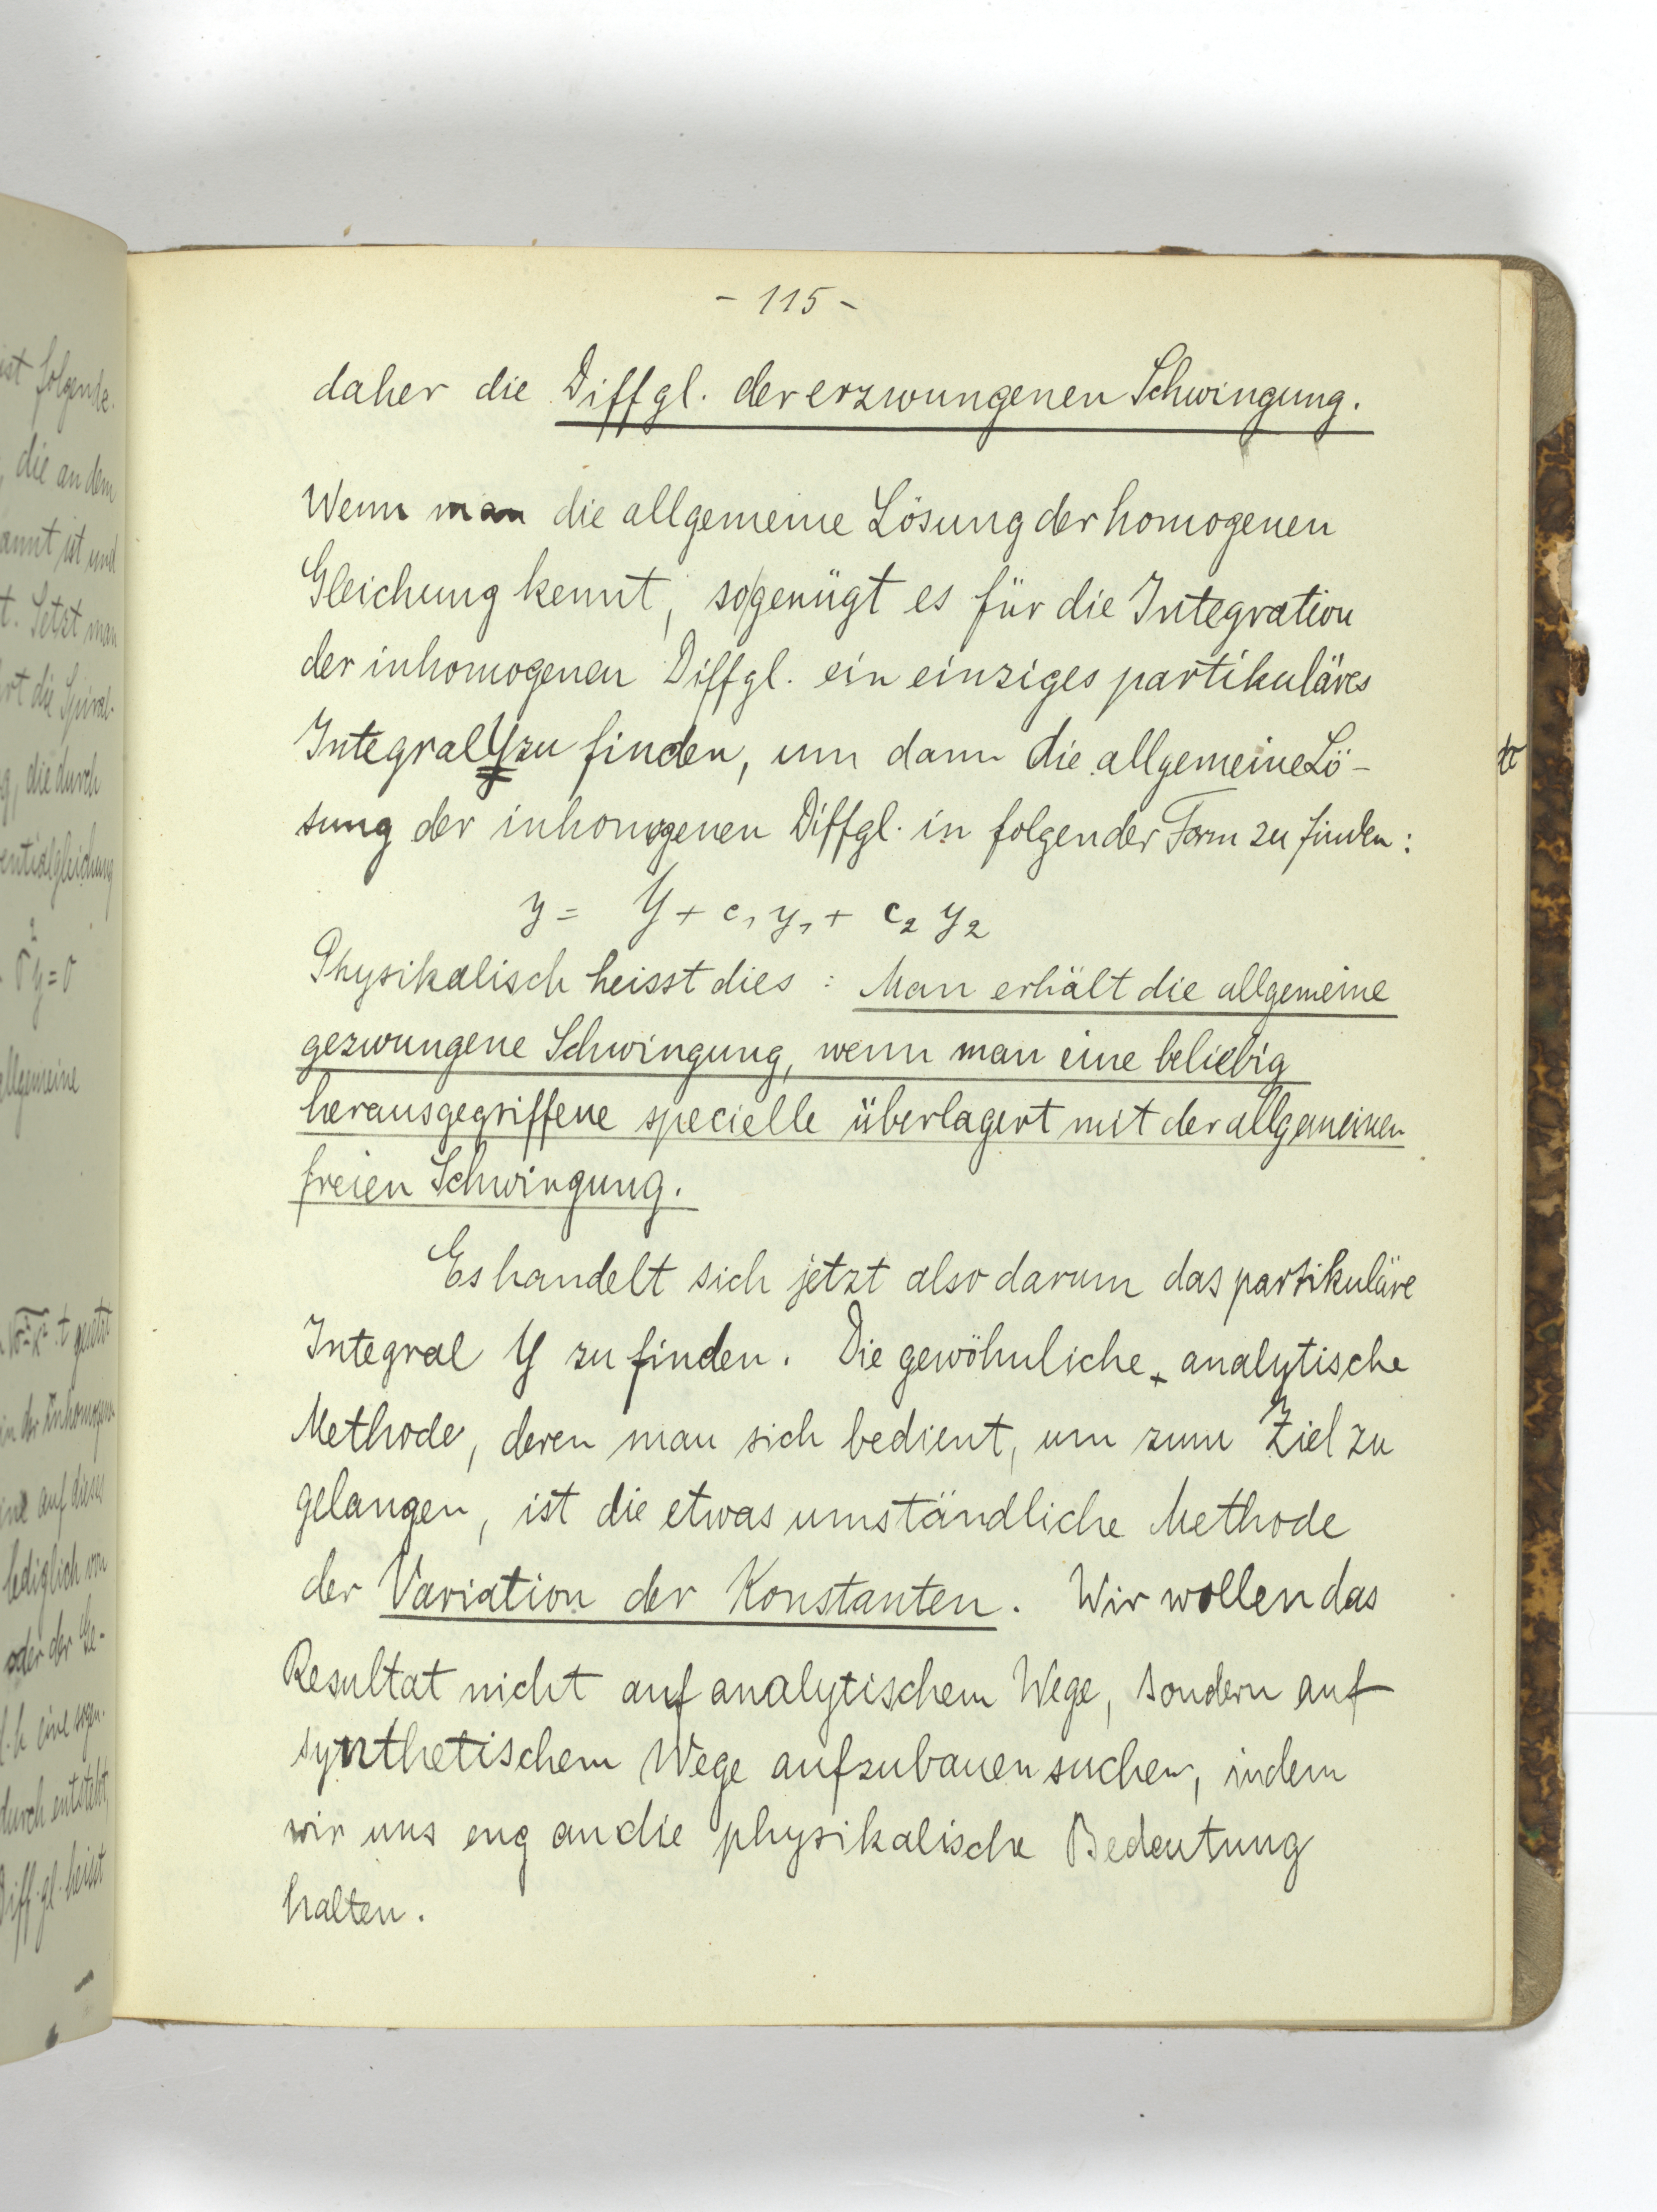 - 115 -
daher die Diffgl. der erzwungenen Schwingung.
Wenn man die allgemeine Lösung der homogenen
Gleichung kennt, so genügt es für die Integration
der inhomogenen Diffgl. ein einziges partikuläres
Integral Y zu finden, um dann die allgemeine Lö-
sung der inhomogenen Diffgl. in folgender Form zu finden:
y = Y + c₁ y₁ + c₂ y₂
Physikalisch heisst dies: Man erhält die allgemeine
gezwungene Schwingung, wenn man eine beliebig
herausgegriffene specielle überlagert mit der allgemeinen
freien Schwingung.
Es handelt sich jetzt also darum das partikuläre
Integral Y zu finden. Die gewöhnliche analytische
Methode, deren man sich bedient, um zum Ziel zu
gelangen, ist die etwas umständliche Methode
der Variation der Konstanten. Wir wollen das
Resultat nicht auf analytischem Wege, sondern auf
synthetischem Wege aufzubauen suchen, indem
wir uns eng an die physikalische Bedeutung
halten.
ist folgende
, die an dem
annt ist und
t. Setzt man
rt die Spiral-
g, die durch
entialgleichung
allgemeine
in der inhomogen
auf dieses
lediglich von
oder der Ge-
d.h eine sogen.
durch entsteht,
Diff.gl. heisst